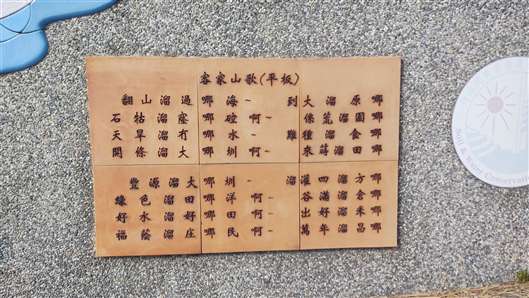 客家山歌(平板)
翻山溜過哪海~ 到大溜原哪
石牯溜窿哪硿啊~ 係荒溜園哪
天旱溜冇哪水~ 難種溜食哪
開條溜大哪圳啊~ 來蒔溜田哪
豐源溜大哪圳~ 溜灌四溜方哪
綠色溜田哪洋啊~ 谷滿溜倉哪
好水溜好哪田啊~ 出好溜米哪
福蔭溜庄哪民啊~ 萬年溜昌哪
Soil & Water Conservation